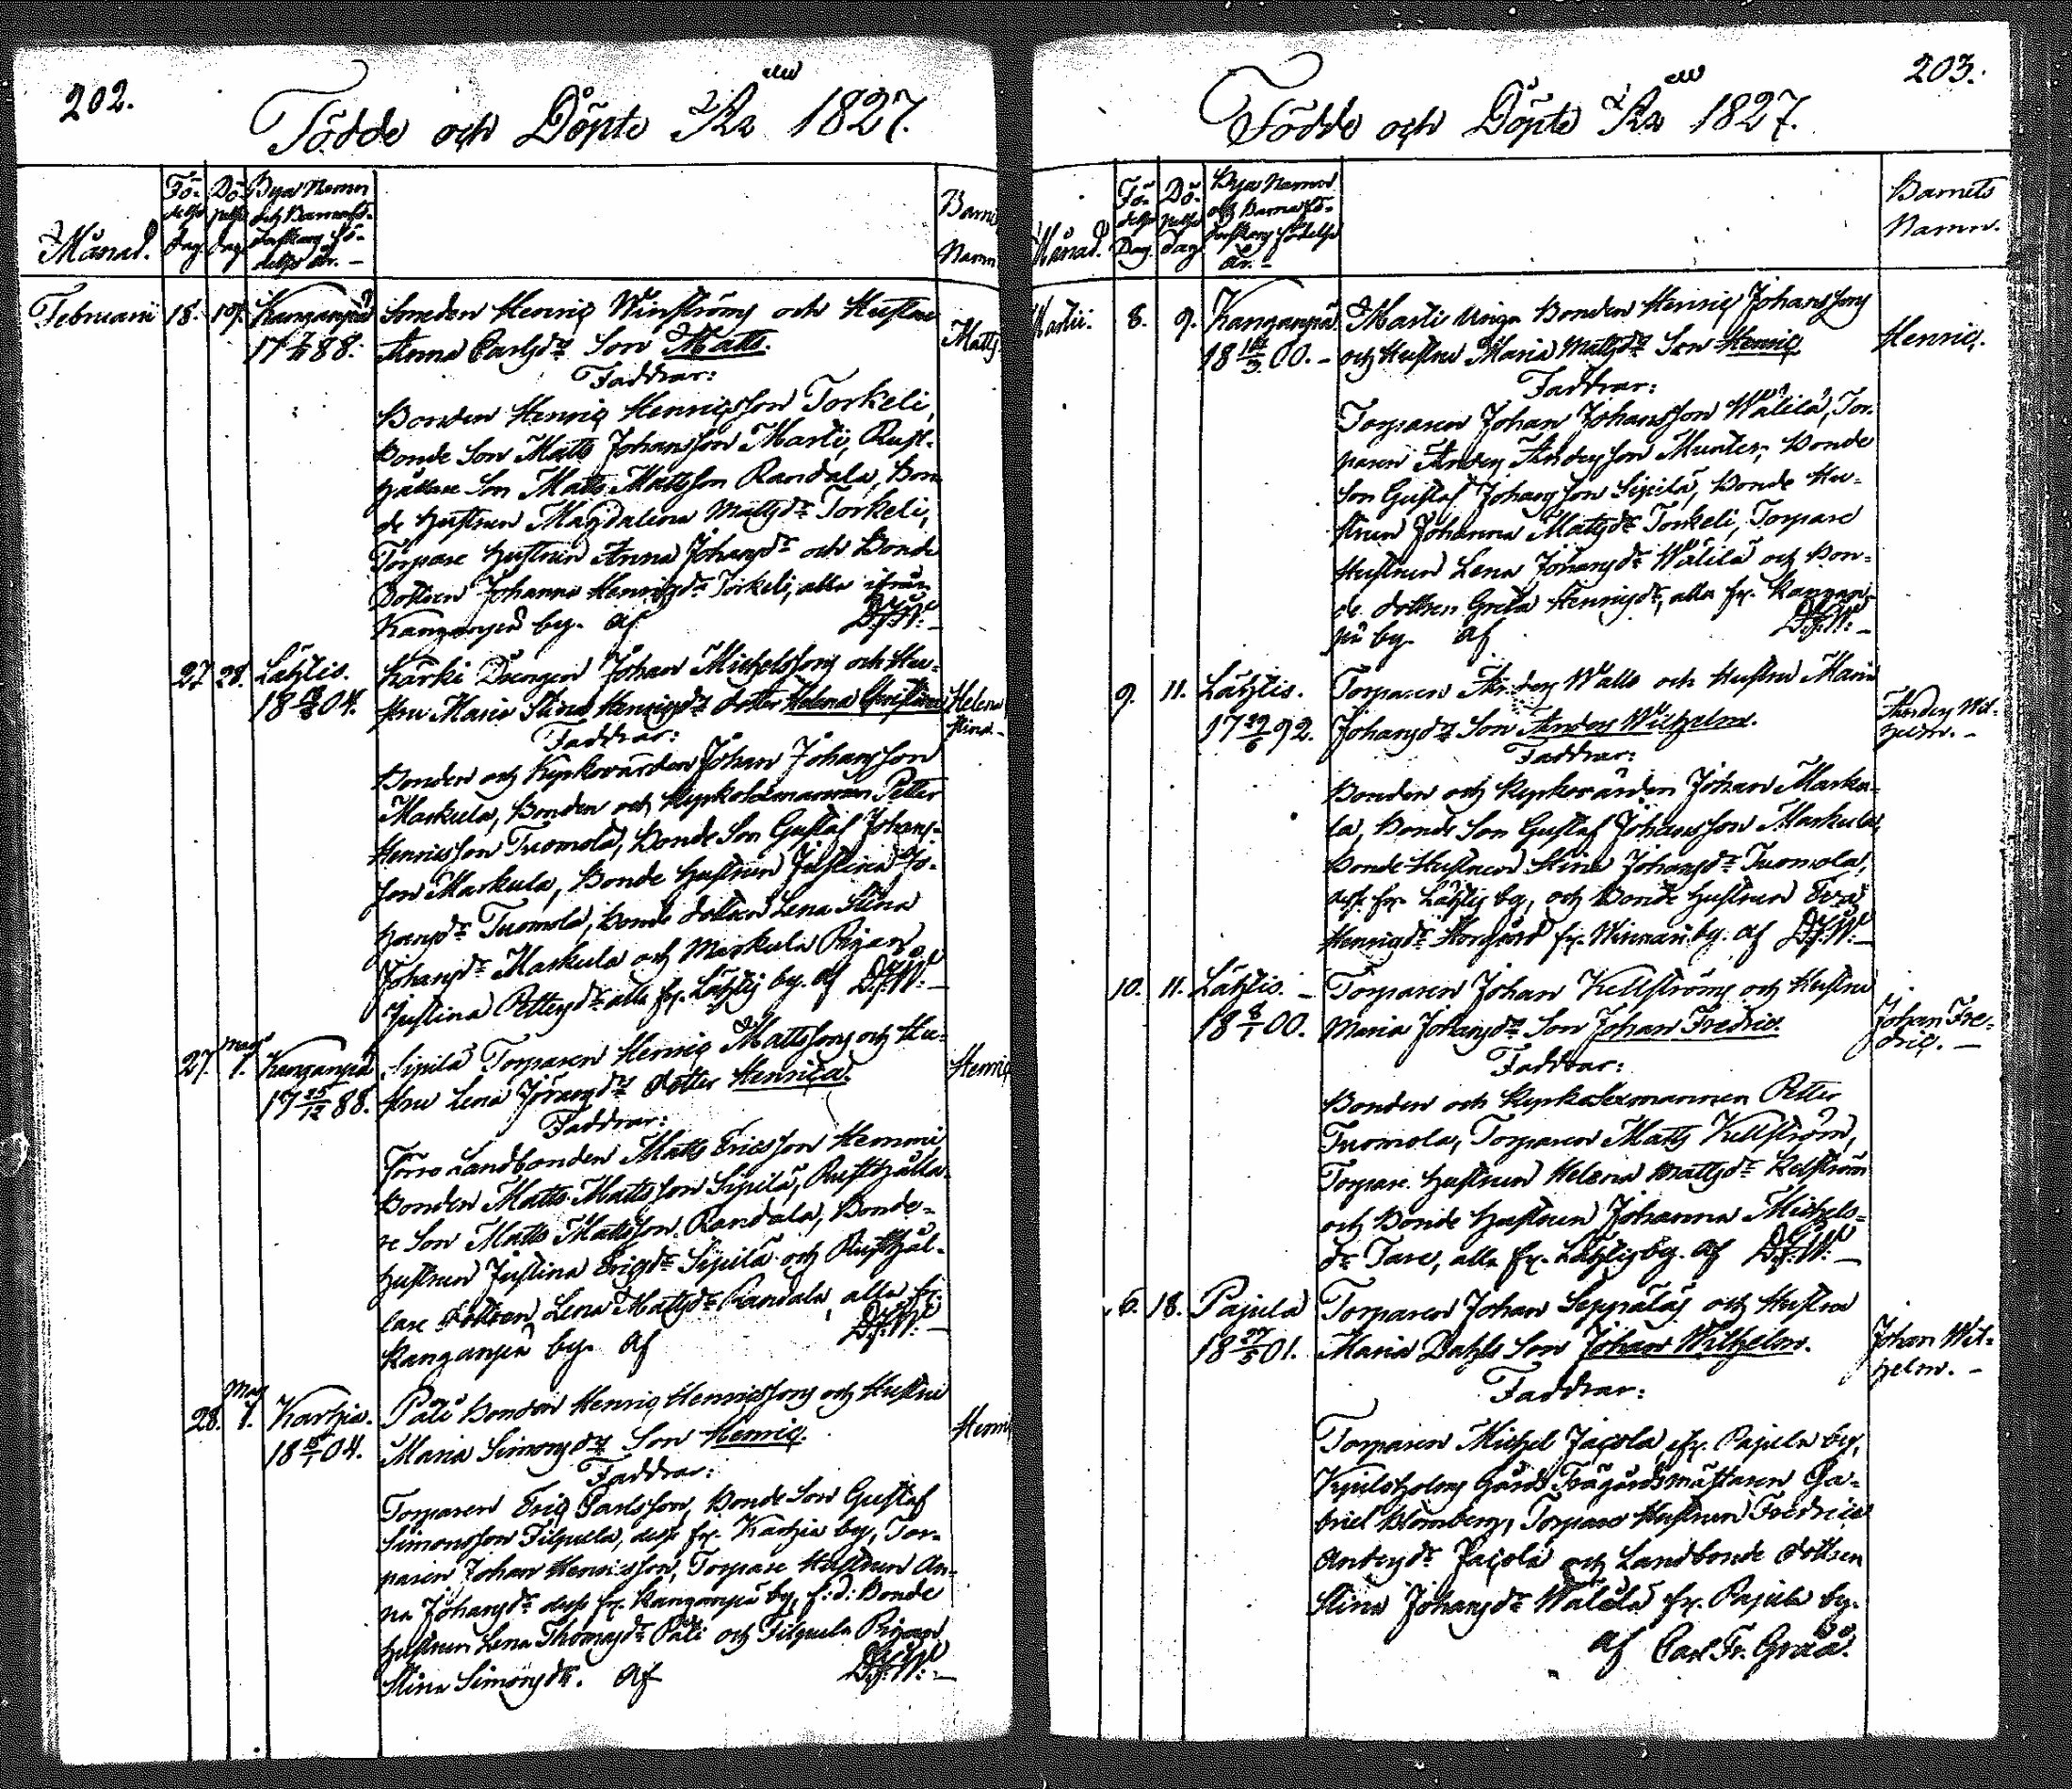 202.
Födde och Döpte År 1827.
Månad.
Fö-
delse
dag
Dö-
pelse
dag
Bya Namn
och Barnafö-
derskans fö-
delse år. –
Barn
Namn
Februarii 18. 19. Kanganpä Smeden Henric Winströms och Hustru Matts
17 88. Anna Carlsdr Son Matts.
Faddrar:
Bonden Henric Henricsson Torkeli,
Bonde Son Matts Johansson Marti, Rust-
hållare Son Matts Mattsson Randala, Bon
de hustrun Magdalena Mattsdr Torkeli,
Torpare hustrun Anna Johansdr och Bonde
Dottren Johanna Henricsdr Torkeli, alla ifrån
Kanganpä by. af D.J.W. –
27 28. Lahtis. Kärki Drengen Johan Michelssons och Hu-
18 04. stru Maria Stina Henricsdr dotter Helena Christina Helena
Stina –
Faddrar:
Bonden och Kyrkovärden Johan Johansson
Markula, Bonden och Kyrkolexmannen Petter
Henricsson Tuomola, Bonde Son Gustaf Johans-
son Markula, Bonde hustrun Justina Jo-
hansdr Tuomola, Bonde dottren Lena Stina
Johansdr Markula och Markula Pigan
Justina Pettersdr alla fr. Lahtis by. af D.J.W. –
27. Mars 1. Kanganpä Sipilä Torparen Henric Mattssons och Hu- Henric
17 25/12 88. stru Lena Göransdr dotter Henrica.
Faddrar:
Förre Landbonden Matts Ericsson Hemmi
Bonden Matts Mattsson Sipilä, Rusthålla-
re Son Matts Mattsson Randala, Bonde-
hustrun Justina Ericsdr Sipilä och Rusthål-
lare dottren Lena Mattsdr Randala, alla fr.
Kanganpä by. af D.J.W. –
28. Mars 1. Karhia. Pali Bonden Henric Henricssons och Hustru Henri
18 04. Maria Simonsdr Son Henric.
Faddrar:
Torparen Eric Carlsson, Bonde Son Gustaf
Simonsson Filpula, desse fr. Karhia by, Tor-
paren Johan Henricsson, Torpare Hustrun An-
na Johansdr desse fr. Kanganpä by, f:d: Bonde
hustrun Lena Thomasdr Pali och Filpula Pigan
Stina Simonsdr. af D.J.W. –
203.
Födde och Döpte År 1827.
Månad.
Fö-
delse
Dag.
Dö-
pelse
Dag
Bya Namn
och Barnafö-
derskans födelse
år. –
Barnets
Namn.
Martii. 8. 9. Kanganpä Marti Unga Bonden Henric Johanssons
18 00. – och Hustru Maria Mattsdr Son Henric Henric.
Faddrar:
Torparen Johan Johansson Wälilä, Tor-
paren Anders Andersson Munter, Bonde
Son Gustaf Johansson Sipilä, Bonde Hu-
strun Johanna Mattsdr Torkeli, Torpare
Hustrun Lena Johansdr Wälilä och Bon-
de dottren Greta Henricsdr, alla fr. Kangan-
pä by. af D.J.W. –
9. 11. Lahtis. Torparen Anders Walls och Hustru Maria
17 92. Johansdr Son Anders Wilhelm. Anders Wil-
helm. –
Faddrar:
Bonden och Kyrkovärden Johan Marku-
la, Bonde Son Gustaf Johansson Markula,
Bonde Hustrun Stina Johansdr Tuomola,
desse fr. Lahtis by, och Bonde hustrun Eva
Henricsdr fr. Winnari by. af D.J.W. –
10. 11. Lahtis. – Torparen Johan Kellströms och Hustru
18 8/1 00. Maria Johansdr Son Johan Fredric. Johan Fre-
dric. –
Faddrar:
Bonden och Kyrkolexmannen Petter
Tuomola, Torparen Matts Kellström,
Torpare hustrun Helena Mattsdr Kellström
och Bonde hustrun Johanna Michels-
dr Tare, alla fr. Lahtis by. af D.J.W. –
6. 18. Pajula Torparen Johan Seppäläs och Hustru
18 27/5 01. Maria Dahls Son Johan Wilhelm. Johan Wil-
helm. –
Faddrar:
Torparen Michel Jacola, fr. Pajula by,
Kjuloholms Gårds Trägårdsmästaren Ga-
briel Blomberg, Torpare Hustrun Fredrica
Andersdr Jacola och Landbonde dottren
Stina Johansdr Wälilä fr. Pajula by.
af Carl Fr. Gråå.